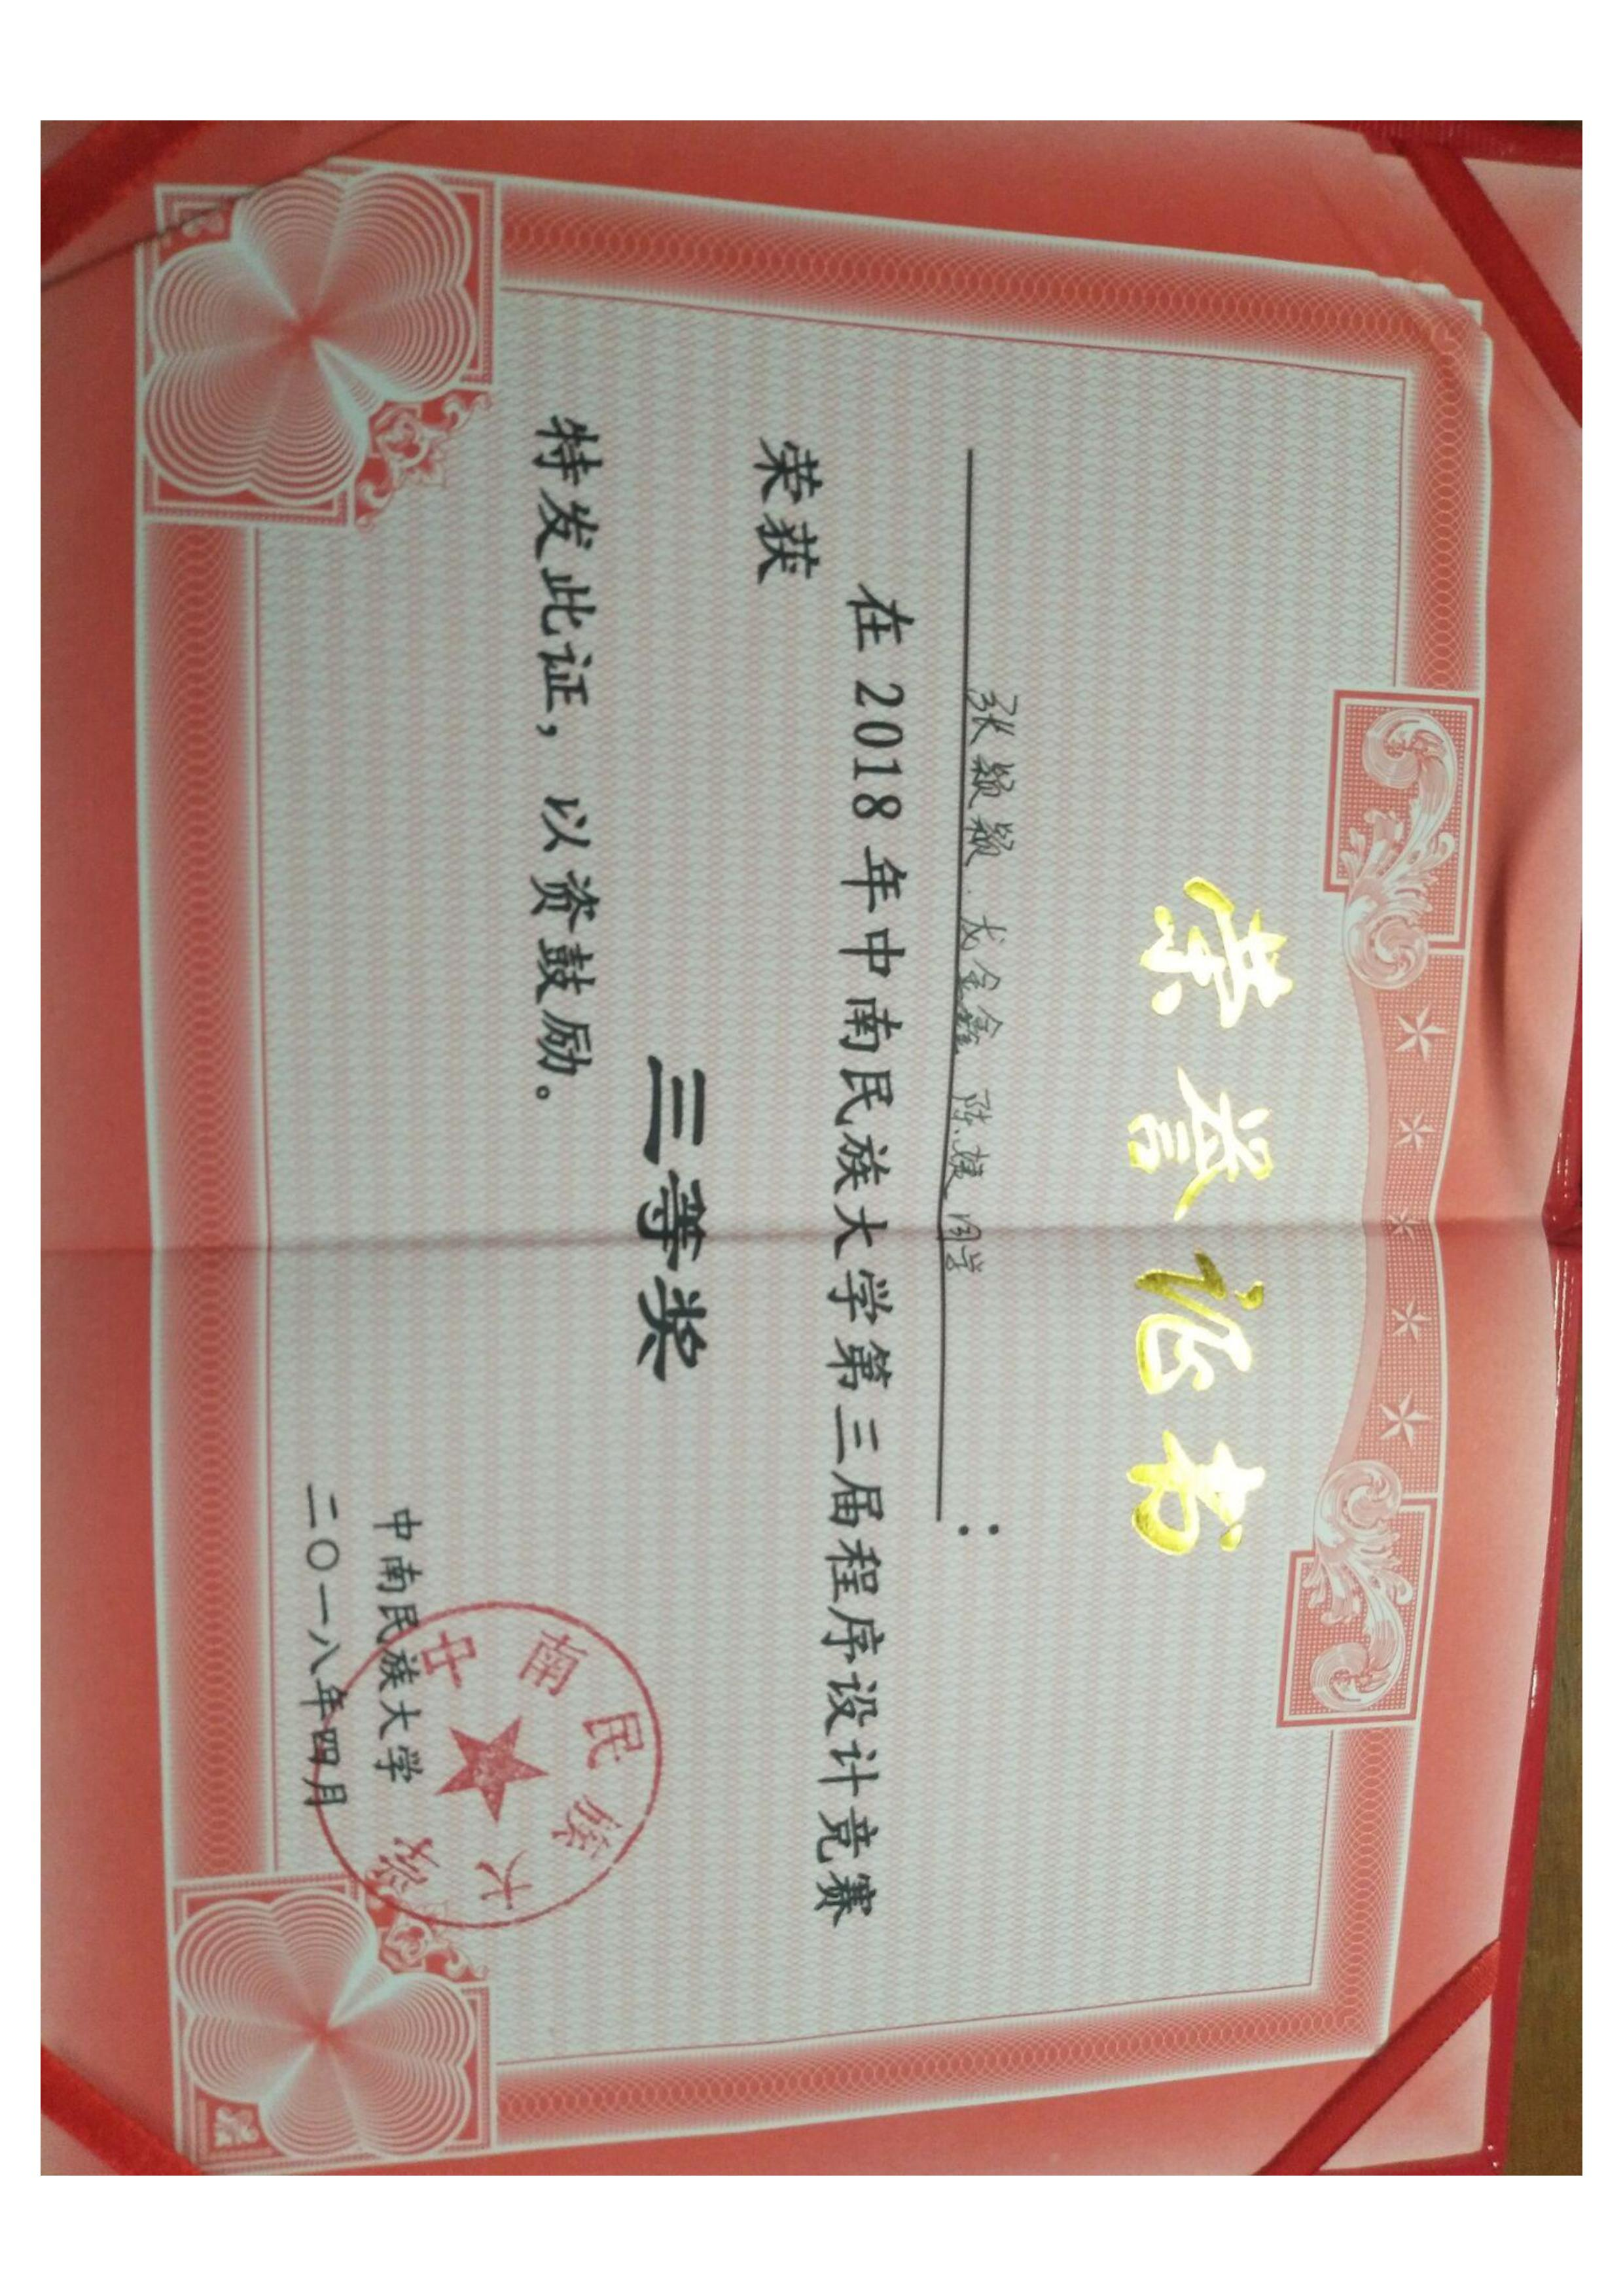 荣誉证书
张颖颖、龙金鑫 陈婕 同学：
在2018年中南民族大学第三届程序设计竞赛
荣获
三等奖
特发此证，以资鼓励。
中南民族大学
二〇一八年四月
中南民族大学